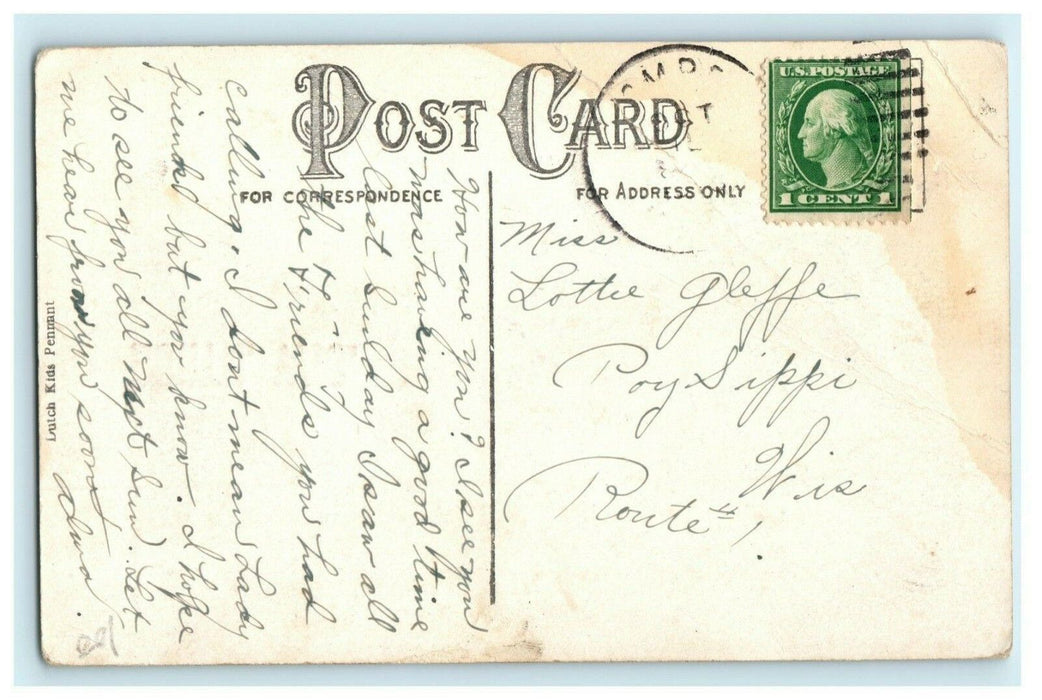 POST CARD
FOR CORRESPONDENCE
FOR ADDRESS ONLY
U.S. POSTAGE
1 CENT 1
Miss
Lottie Gleffe
Poy Sippi
Wis
Route 1,
How are you? I see you
was having a good time
last Sunday I saw all
the Friends you had
calling. I dont mean Lady
friends but you know. I hope
to see you all Next Sun. Let
me hear from you soon
Dutch Kids Pennant